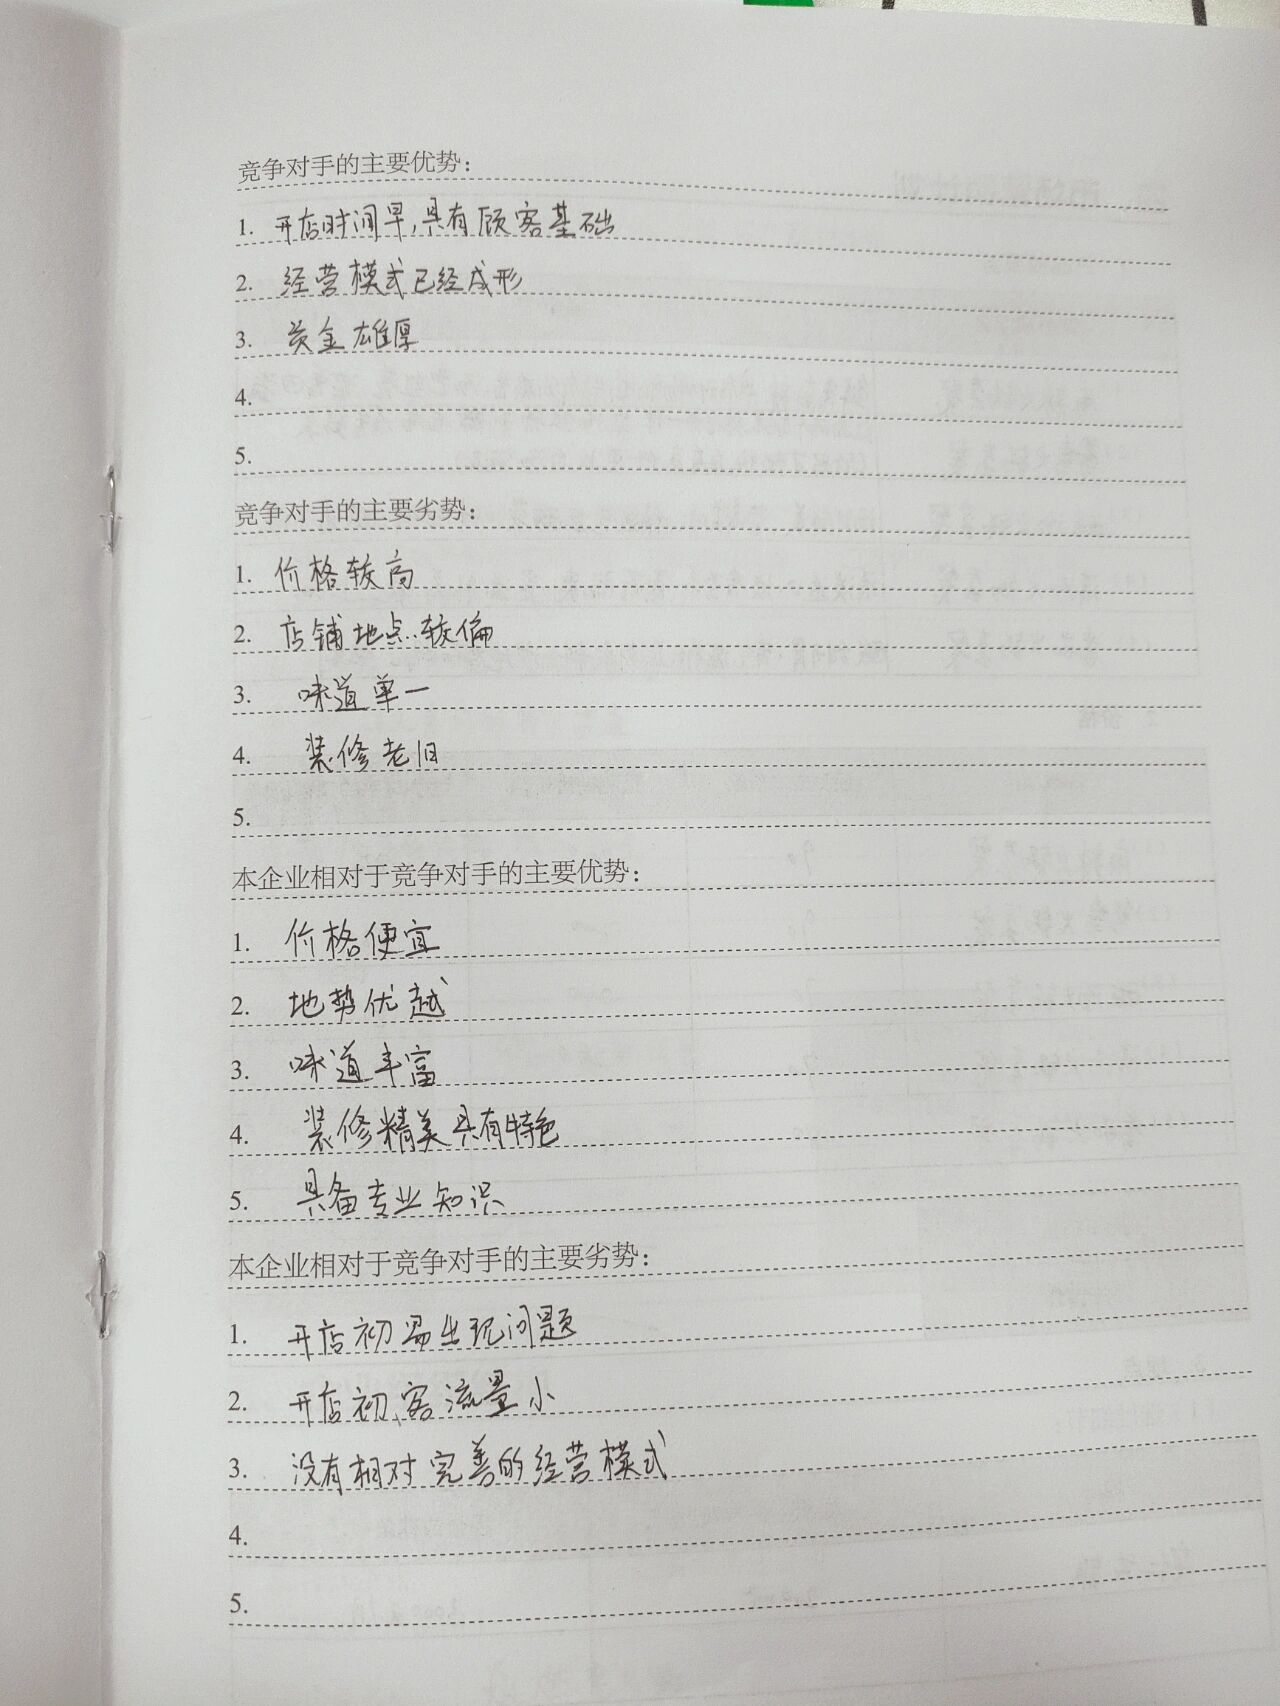 竞争对手的主要优势：
1. 开店时间早，具有顾客基础
2. 经营模式已经成形
3. 资金雄厚
4.
5.
竞争对手的主要劣势：
1. 价格较高
2. 店铺地点较偏
3. 味道单一
4. 装修老旧
5.
本企业相对于竞争对手的主要优势：
1. 价格便宜
2. 地势优越
3. 味道丰富
4. 装修精美具有特色
5. 具备专业知识
本企业相对于竞争对手的主要劣势：
1. 开店初易出现问题
2. 开店初、客流量小
3. 没有相对完善的经营模式
4.
5.